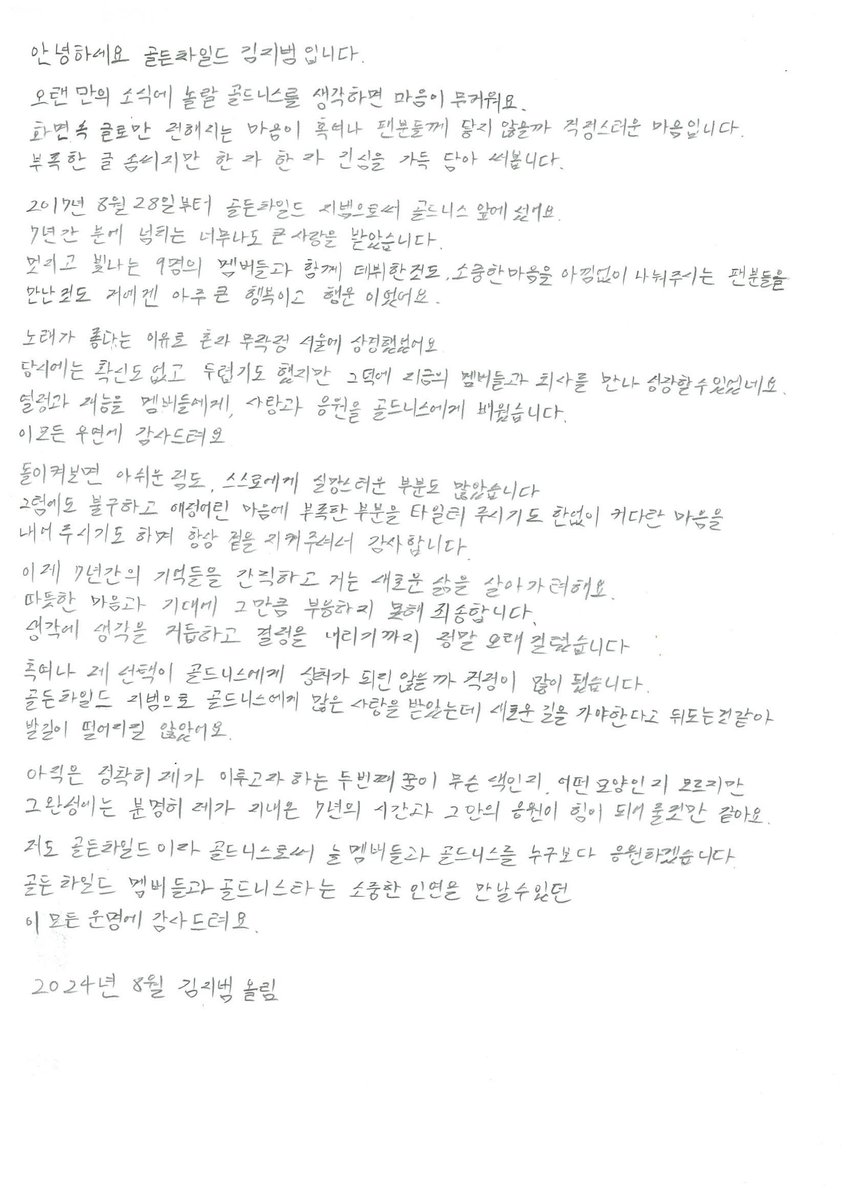 안녕하세요 골든차일드 김지범입니다.
오랜 만의 소식에 놀랄 골드니스를 생각하면 마음이 무거워요.
화면속 글로만 전해지는 마음이 혹여나 팬분들께 닿지 않을까 걱정스러운 마음입니다.
부족한 글 솜씨지만 한 자 한 자 진심을 가득 담아 써봅니다.
2017년 8월 28일부터 골든차일드 지범으로써 골드니스 앞에 섰어요
7년간 분에 넘치는 너무나도 큰 사랑을 받았습니다.
멋지고 빛나는 9명의 멤버들과 함께 데뷔한것도, 소중한마음을 아낌없이 나눠주시는 팬분들을
만난것도 저에겐 아주 큰 행복이고 행운 이었어요.
노래가 좋다는 이유로 혼자 무작정 서울에 상경했었어요
당시에는 확신도 없고 두렵기도 했지만 그덕에 지금의 멤버들과 회사를 만나 성장할수있었네요.
열정과 재능을 멤버들에게, 사랑과 응원을 골드니스에게 배웠습니다.
이모든 우연에 감사드려요
돌이켜보면 아쉬운 점도, 스스로에게 실망스러운 부분도 많았습니다
그럼에도 불구하고 애정어린 마음에 부족한 부분을 타일러 주시기도 한없이 커다란 마음을
내어 주시기도 하며 항상 곁을 지켜주셔서 감사합니다.
이제 7년간의 기억들을 간직하고 저는 새로운 삶을 살아가려해요.
따뜻한 마음과 기대에 그만큼 부응하지 못해 죄송합니다.
생각에 생각을 거듭하고 결정을 내리기까지 정말 오래 걸렸습니다
혹여나 제 선택이 골드니스에게 상처가 되진 않을까 걱정이 많이 됐습니다.
골든차일드 지범으로 골드니스에게 많은 사랑을 받았는데 새로운 길을 가야한다고 뒤도는것같아
발길이 떨어지질 않았어요.
아직은 정확히 제가 이루고자 하는 두번째 꿈이 무슨 색인지, 어떤 모양인지 모르지만
그완성에는 분명히 제가 지내온 7년의 시간과 그 안의 응원이 힘이 되어 줄것만 같아요.
저도 골든차일드이자 골드니스로써 늘 멤버들과 골드니스를 누구보다 응원하겠습니다
골든 차일드 멤버들과 골드니스라는 소중한 인연을 만날수있던
이 모든 운명에 감사드려요.
2024년 8월 김지범 올림